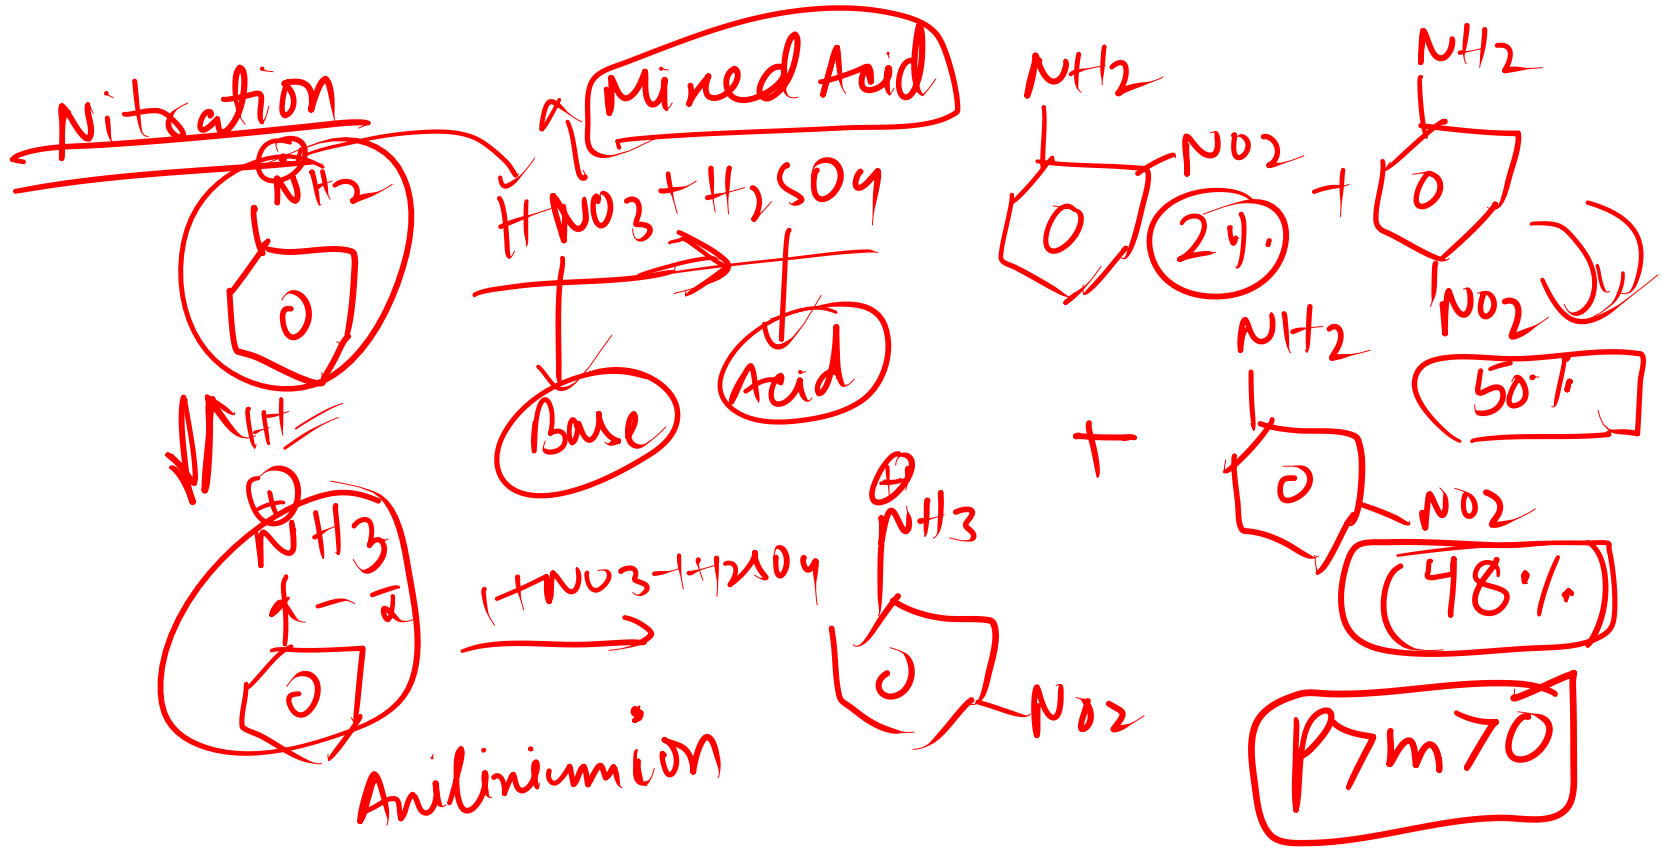 Nitration
Mixed Acid
HNO3 + H2SO4
Base
Acid
⊕
NH2
H+
⊕
NH3
HNO3 + H2SO4
Anilinium ion
NH2
NO2
2%
+
NH2
NO2
50%
+
NH2
NO2
48%
⊕
NH3
NO2
p>m>o